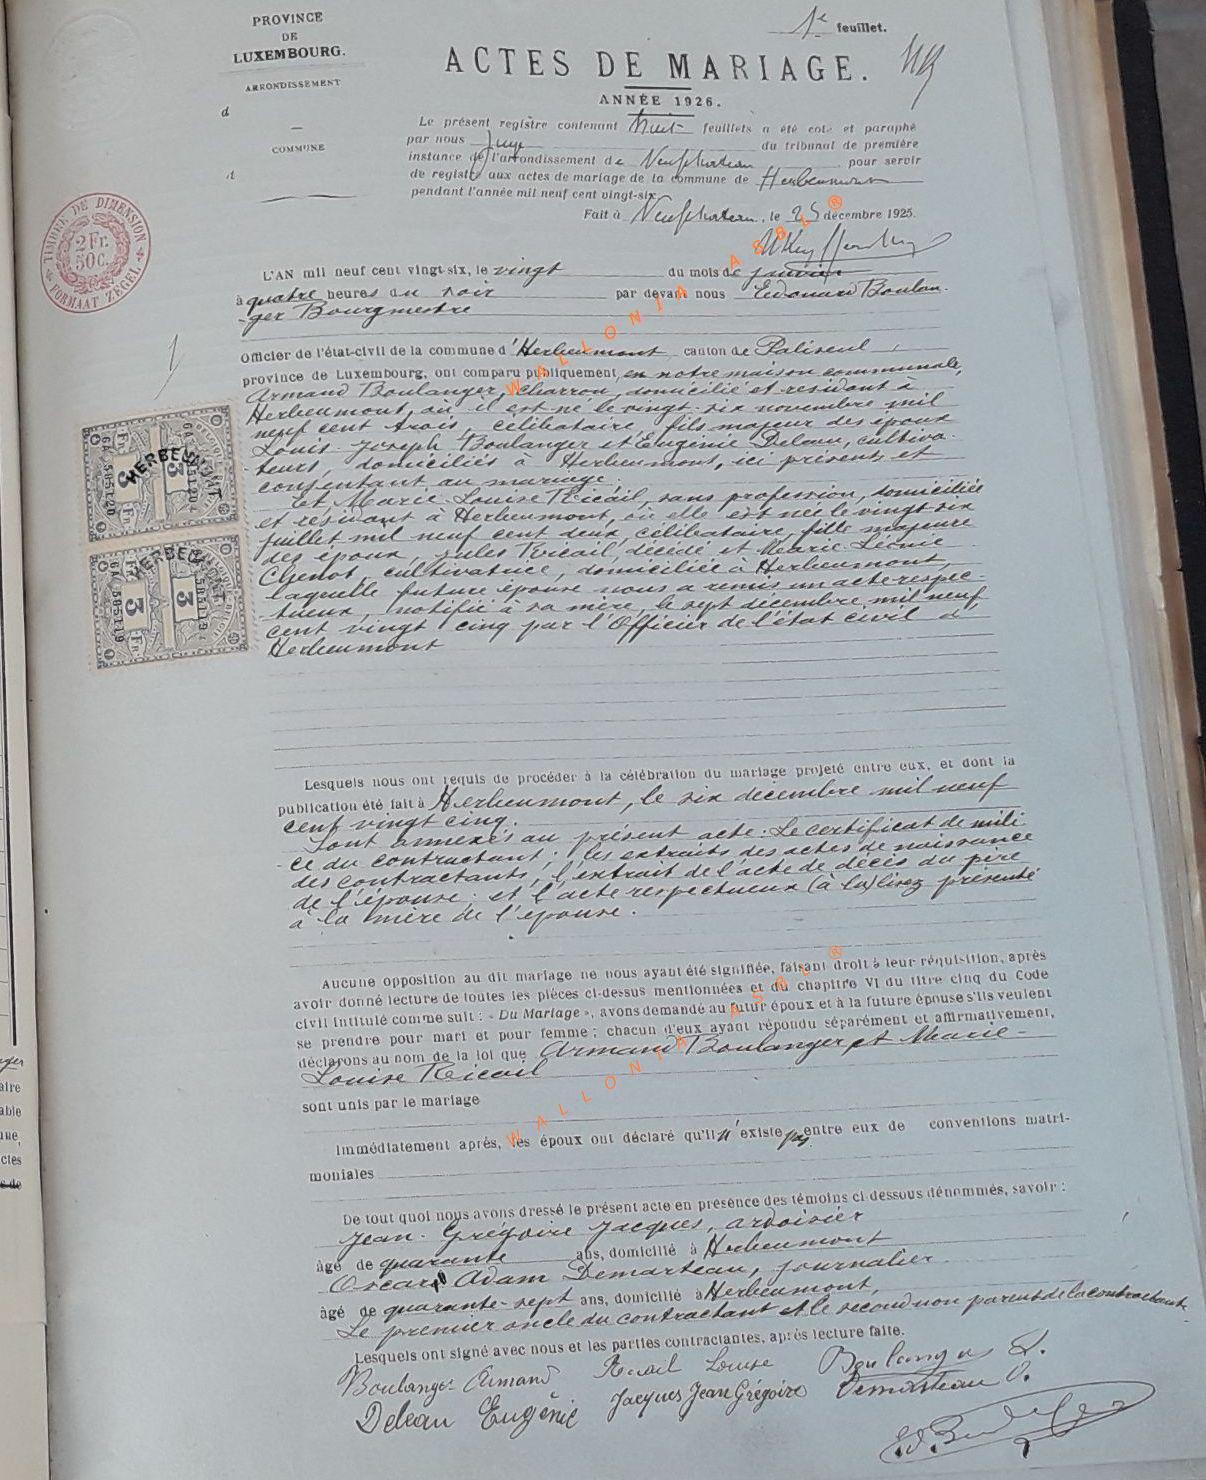 PROVINCE
DE
LUXEMBOURG.
ARRONDISSEMENT
d
COMMUNE
d
1e feuillet.
ACTES DE MARIAGE.
ANNÉE 1926.
Le présent registre contenant huit feuillets a été coté et paraphé
par nous Juge du tribunal de première
instance de l'arrondissement de Neufchateau pour servir
de registre aux actes de mariage de la commune de Herbeumont
pendant l'année mil neuf cent vingt-six.
Fait à Neufchateau, le 25 décembre 1925.
TIMBRE DE DIMENSION
2 Fr.
50c.
FORMAAT ZEGEL
L'AN mil neuf cent vingt-six, le vingt du mois de janvier
à quatre heures du soir par devant nous Edouard Boulan-
-ger Bourgmestre
1
Officier de l'état-civil de la commune d'Herbeumont canton de Paliseul,
province de Luxembourg, ont comparu publiquement, en notre maison communale,
Armand Boulanger, charron, domicilié et résidant à
Herbeumont, où il est né le vingt-six novembre mil
neuf cent trois, célibataire, fils majeur des époux
Louis-Joseph Boulanger et Eugénie Deleau, cultiva-
-teurs, domiciliés à Herbeumont, ici présents et
consentant au mariage.
Et Marie-Louise Ricail, sans profession, domiciliée
et résidant à Herbeumont, où elle est née le vingt six
juillet mil neuf cent deux, célibataire, fille majeure
des époux, Jules Ricail, décédé et Marie-Léonie
Chenot, cultivatrice, domiciliée à Herbeumont,
laquelle future épouse nous a remis un acte respec-
-tueux, notifié à sa mère, le sept décembre mil neuf
cent vingt cinq par l'Officier de l'état civil à
Herbeumont
HERBEUMONT
3 Fr. 3
HERBEU
3 Fr. 3
Lesquels nous ont requis de procéder à la célébration du mariage projeté entre eux, et dont la
publication été fait à Herbeumont, le six décembre mil neuf
cent vingt cinq.
Sont annexés au présent acte: Le certificat de mili-
-ce du contractant; les extraits des actes de naissance
des contractants, l'extrait de l'acte de décès du père
de l'épouse, et l'acte respectueux (à la) lisez présenté
à la mère de l'épouse.
Aucune opposition au dit mariage ne nous ayant été signifiée, faisant droit à leur réquisition, après
avoir donné lecture de toutes les pièces ci-dessus mentionnées et du chapitre VI du titre cinq du Code
civil intitulé comme suit: « Du Mariage », avons demandé au futur époux et à la future épouse s'ils veulent
se prendre pour mari et pour femme; chacun d'eux ayant répondu séparément et affirmativement,
déclarons au nom de la loi que Armand Boulanger et Marie-
Louise Ricail
sont unis par le mariage
Immédiatement après, les époux ont déclaré qu'il n'existe pas entre eux de conventions matri-
moniales
De tout quoi nous avons dressé le présent acte en présence des témoins ci-dessous dénommés, savoir:
Jean-Grégoire Jacques, ardoisier
âgé de quarante ans, domicilié à Herbeumont
Oscar Adam Demarteau, journalier
âgé de quarante-sept ans, domicilié à Herbeumont,
Le premier oncle du contractant et le second non parent de la contractante
Lesquels ont signé avec nous et les parties contractantes, après lecture faite.
Boulanger Armand Ricail Louise Boulanger L.
Deleau Eugénie Jacques Jean Grégoire Demarteau O.
WALLONIA ASBL ®
WALLONIA ASBL ®